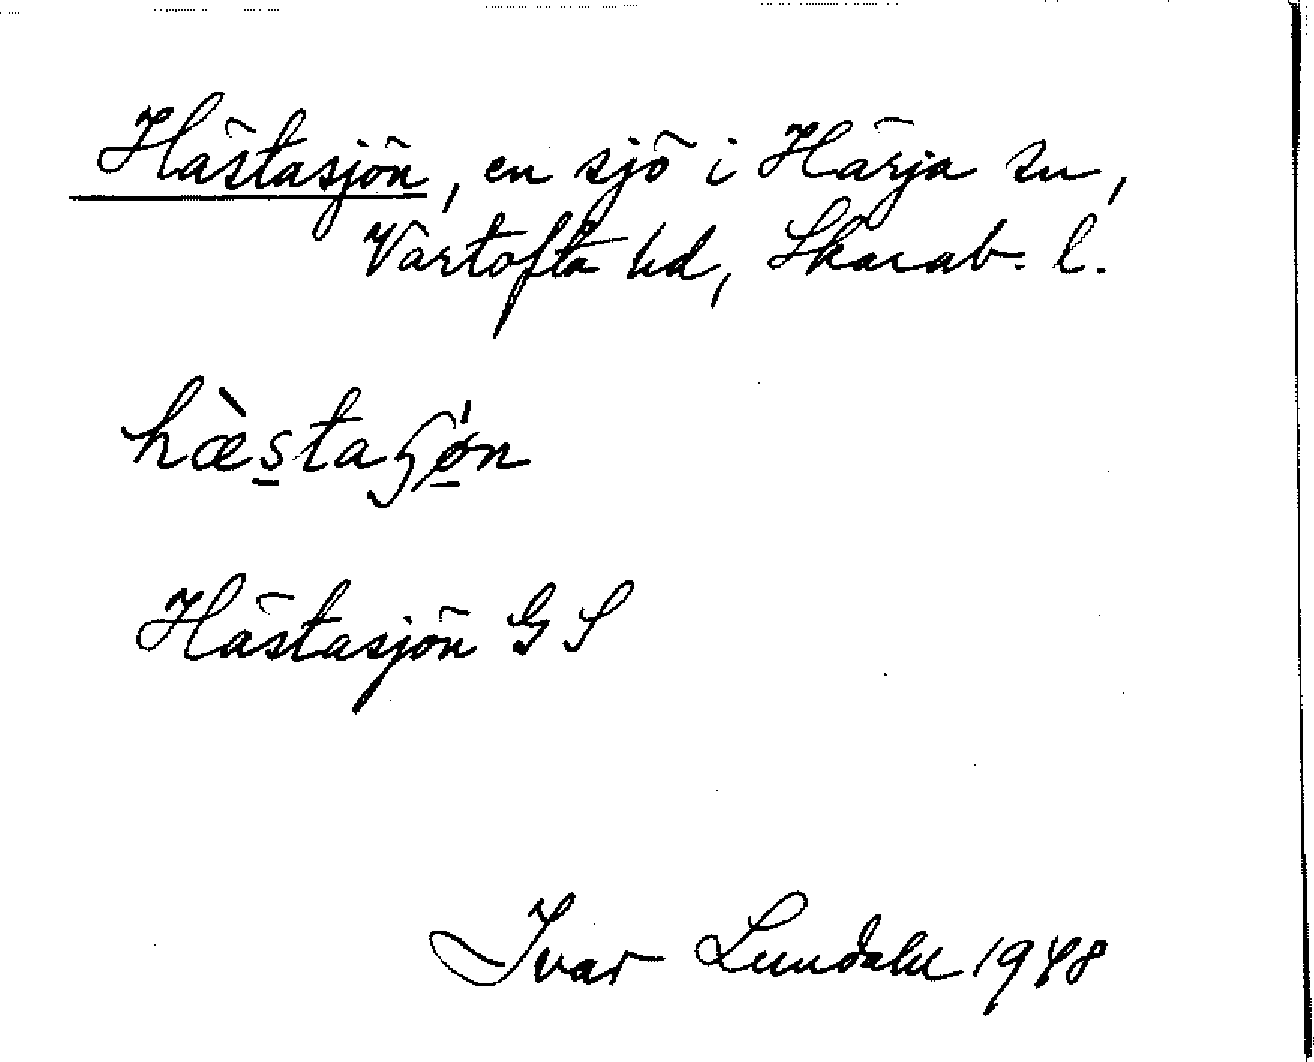 Hästasjön, en sjö i Härja sn,
Vartofta hd, Skarab. l.
hæ̀s̱taʂǿ̱n
Hästasjön G S
Ivar Lundahl 1948